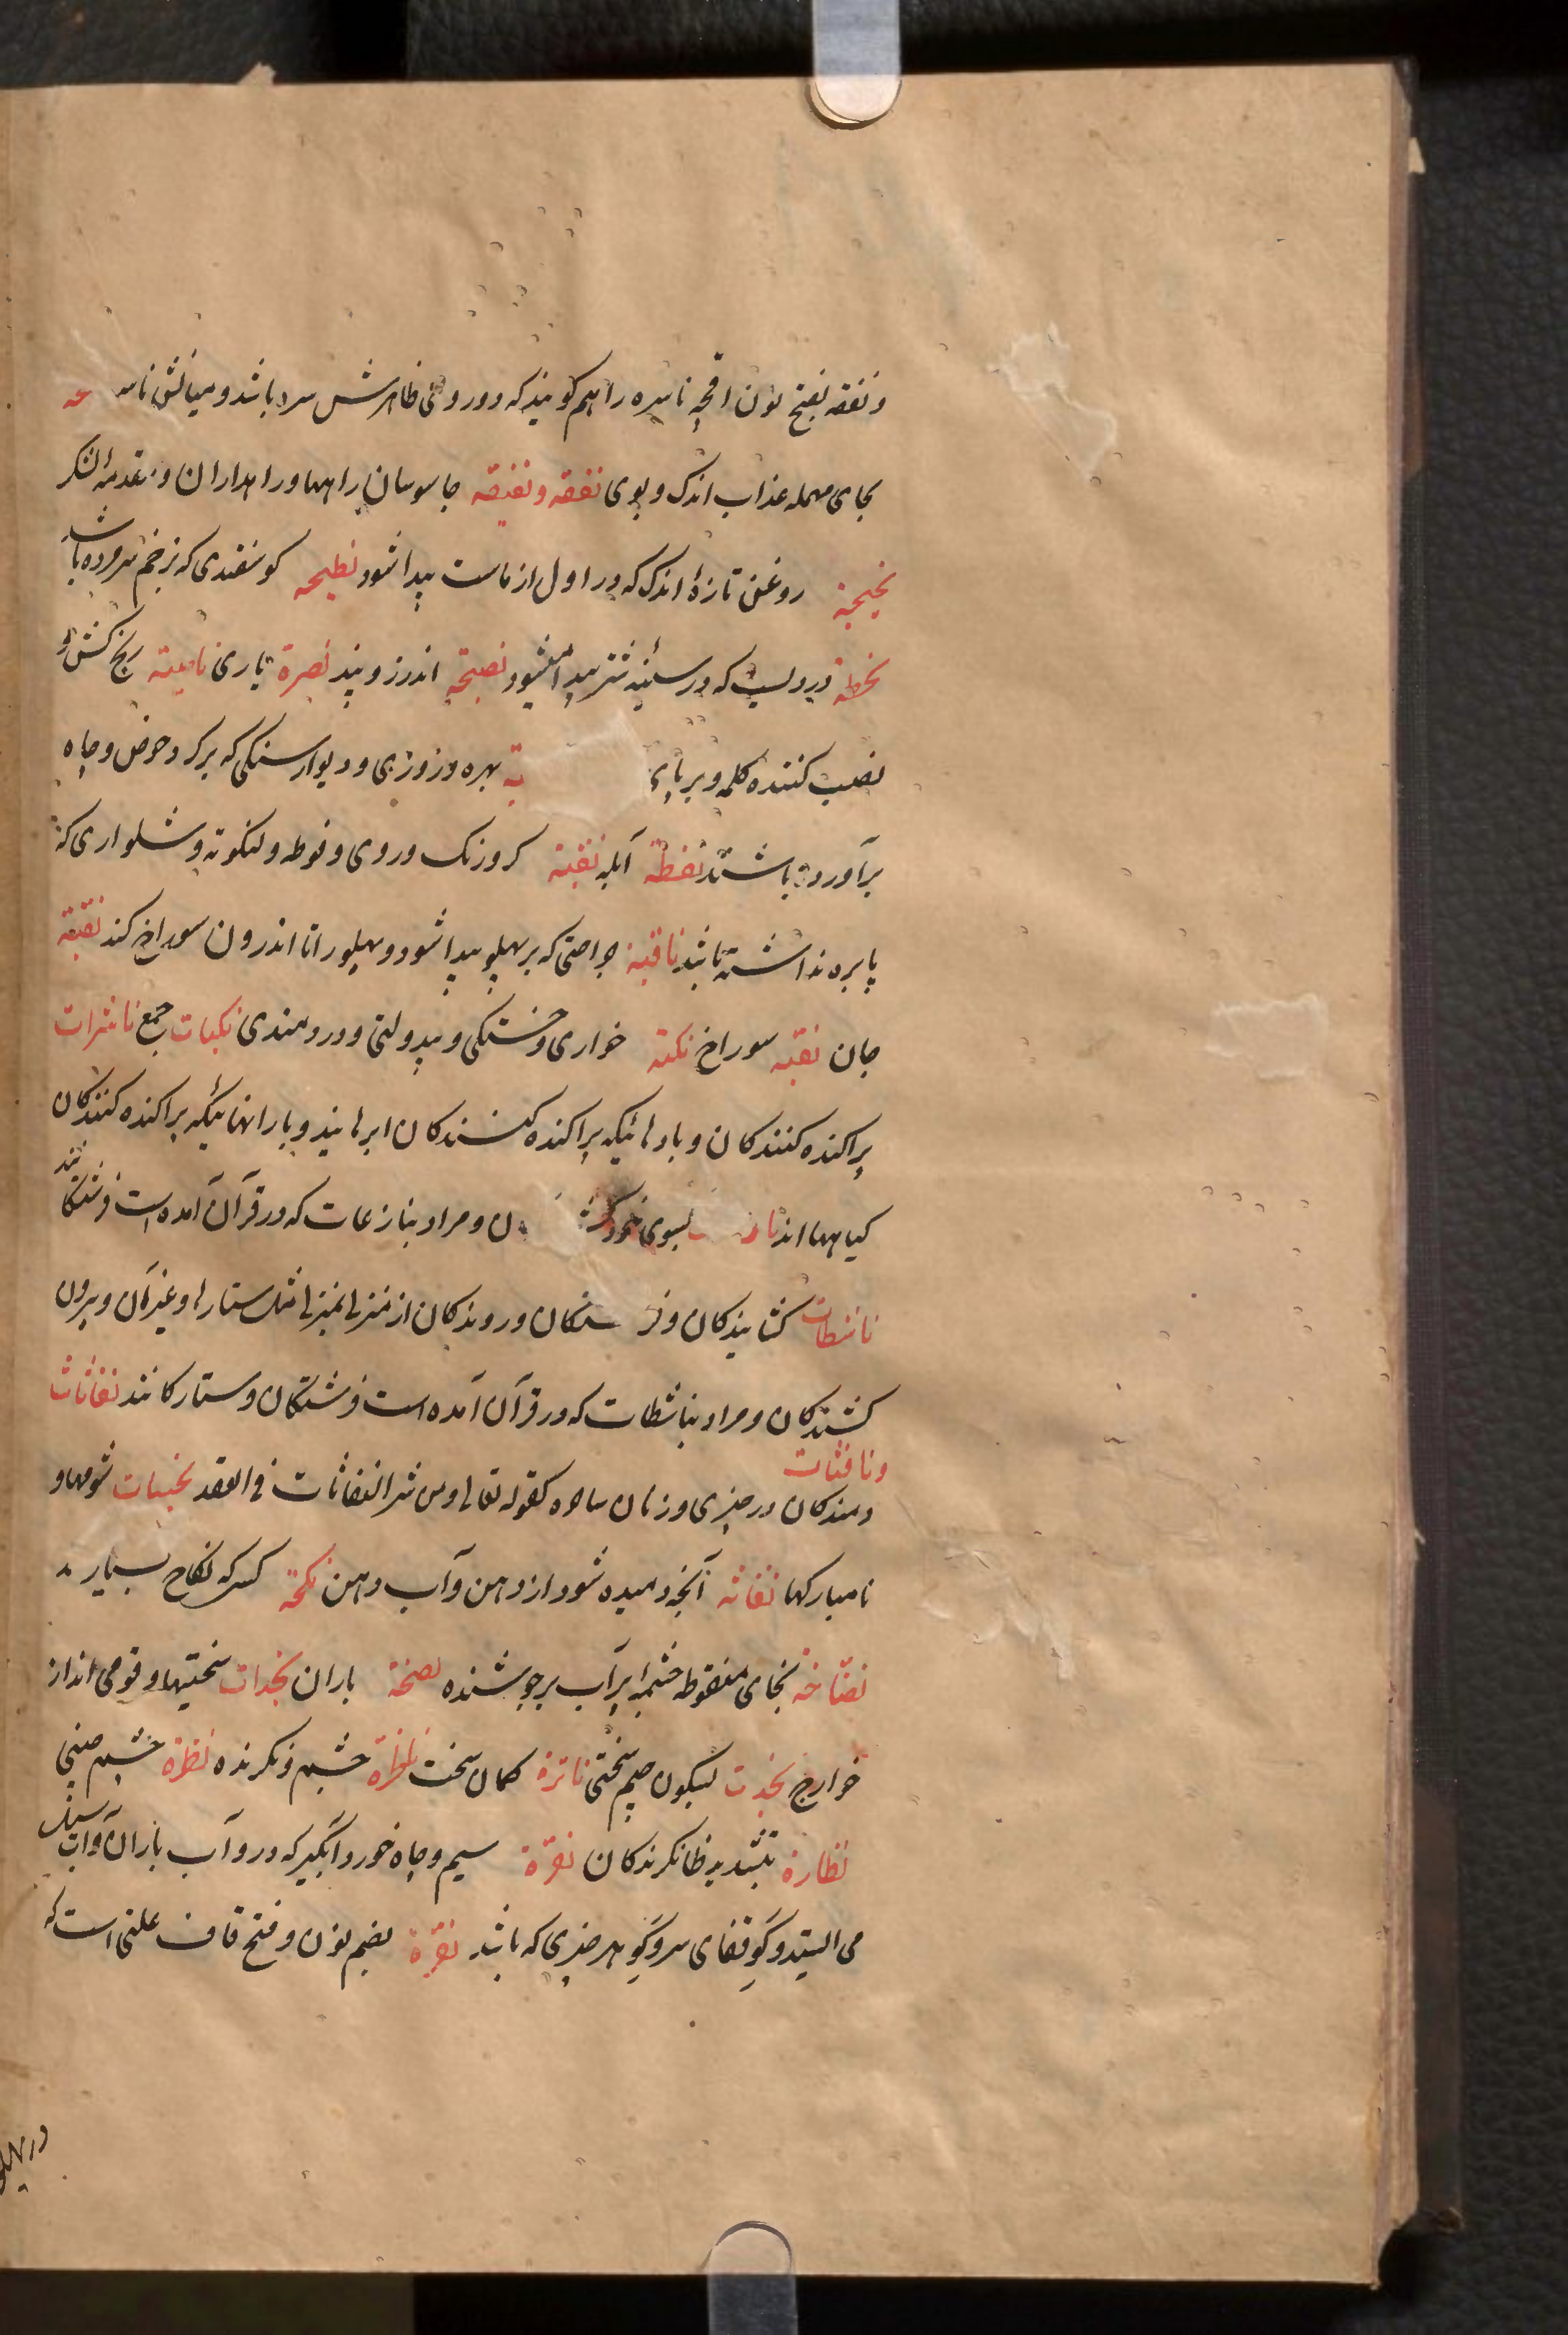 و نفقه بفتح نون اقچهٔ ناسره را هم گویند که دو روی ظاهرش سره باشد و میانش ناسره
بحای مهمله عذاب اندک و بوی نفقه و نفیقه جاسوسان راهها و راهداران و مقدمهٔ لشکر
نجیجة روغن تازهٔ اندک که در اول از ماست پیدا شود نطیحه گوسفندی که بزخم سرو مرده باشد
نحطة دردیست که در سینهٔ شتر پیدا میشود نصیحة اندرز و پند نصرة یاری ناصبة رنج کش و
نصب کننده کلمه و برپای بة بهره و روزی و دیوار سنگی که بر گرد حوض و چاه
برآورده باشند نفطة آبله نقبة گروزنگ و روی و فوطه و لنگوته و شلواری که
پابره نداشته باشد ناقبة جراحتی که بر پهلو پیدا شود و پهلو را تا اندرون سوراخ کند نقیبة
جان نقبه سوراخ نکبة خواری و خستگی و بیدولتی و دردمندی نکبات جمع ناشرات
پراکنده کنندگان و بادهائیکه پراکنده کنندگان ابرهایند و بارانهائیکه پراکنده کنندگان
گیاهها اند بسوی خود ن و مراد بنازعات که در قرآن آمده است فرشتگانند
ناشطات گشایندگان و فر شتگان و روندگان از منزلی بمنزلی مثل ستارها و غیر آن و بیرون
کشندگان و مراد بناشطات که در قرآن آمده است فرشتگان و ستارگانند نفاثات
و نافثات
دمندگان در چیزی و زنان ساحره کقوله تعالی و من شر النفاثات فی العقد نحسات شومها و
نامبارکها نفاثه آنچه دمیده شود از دهن و آب دهن نکحة کسی که نکاح بسیار
نضّاخة بخای منقوطه چشمهٔ پر آب بر جوشنده نضخة باران نجدات سختیها و قومی اند از
خوارج نجدت بسکون جیم سختی ناترة کمان سخت ناظرة چشم و نگرنده نظرة چشم
نظارة بتشدید ظا نگرندگان نقرة سیم و چاه خورد و آبگیر که درو آب باران و آب سیل
می ایستد و گو قفای سر و گو هر چیزی که باشد نقرة بضم نون و فتح قاف علتی است که